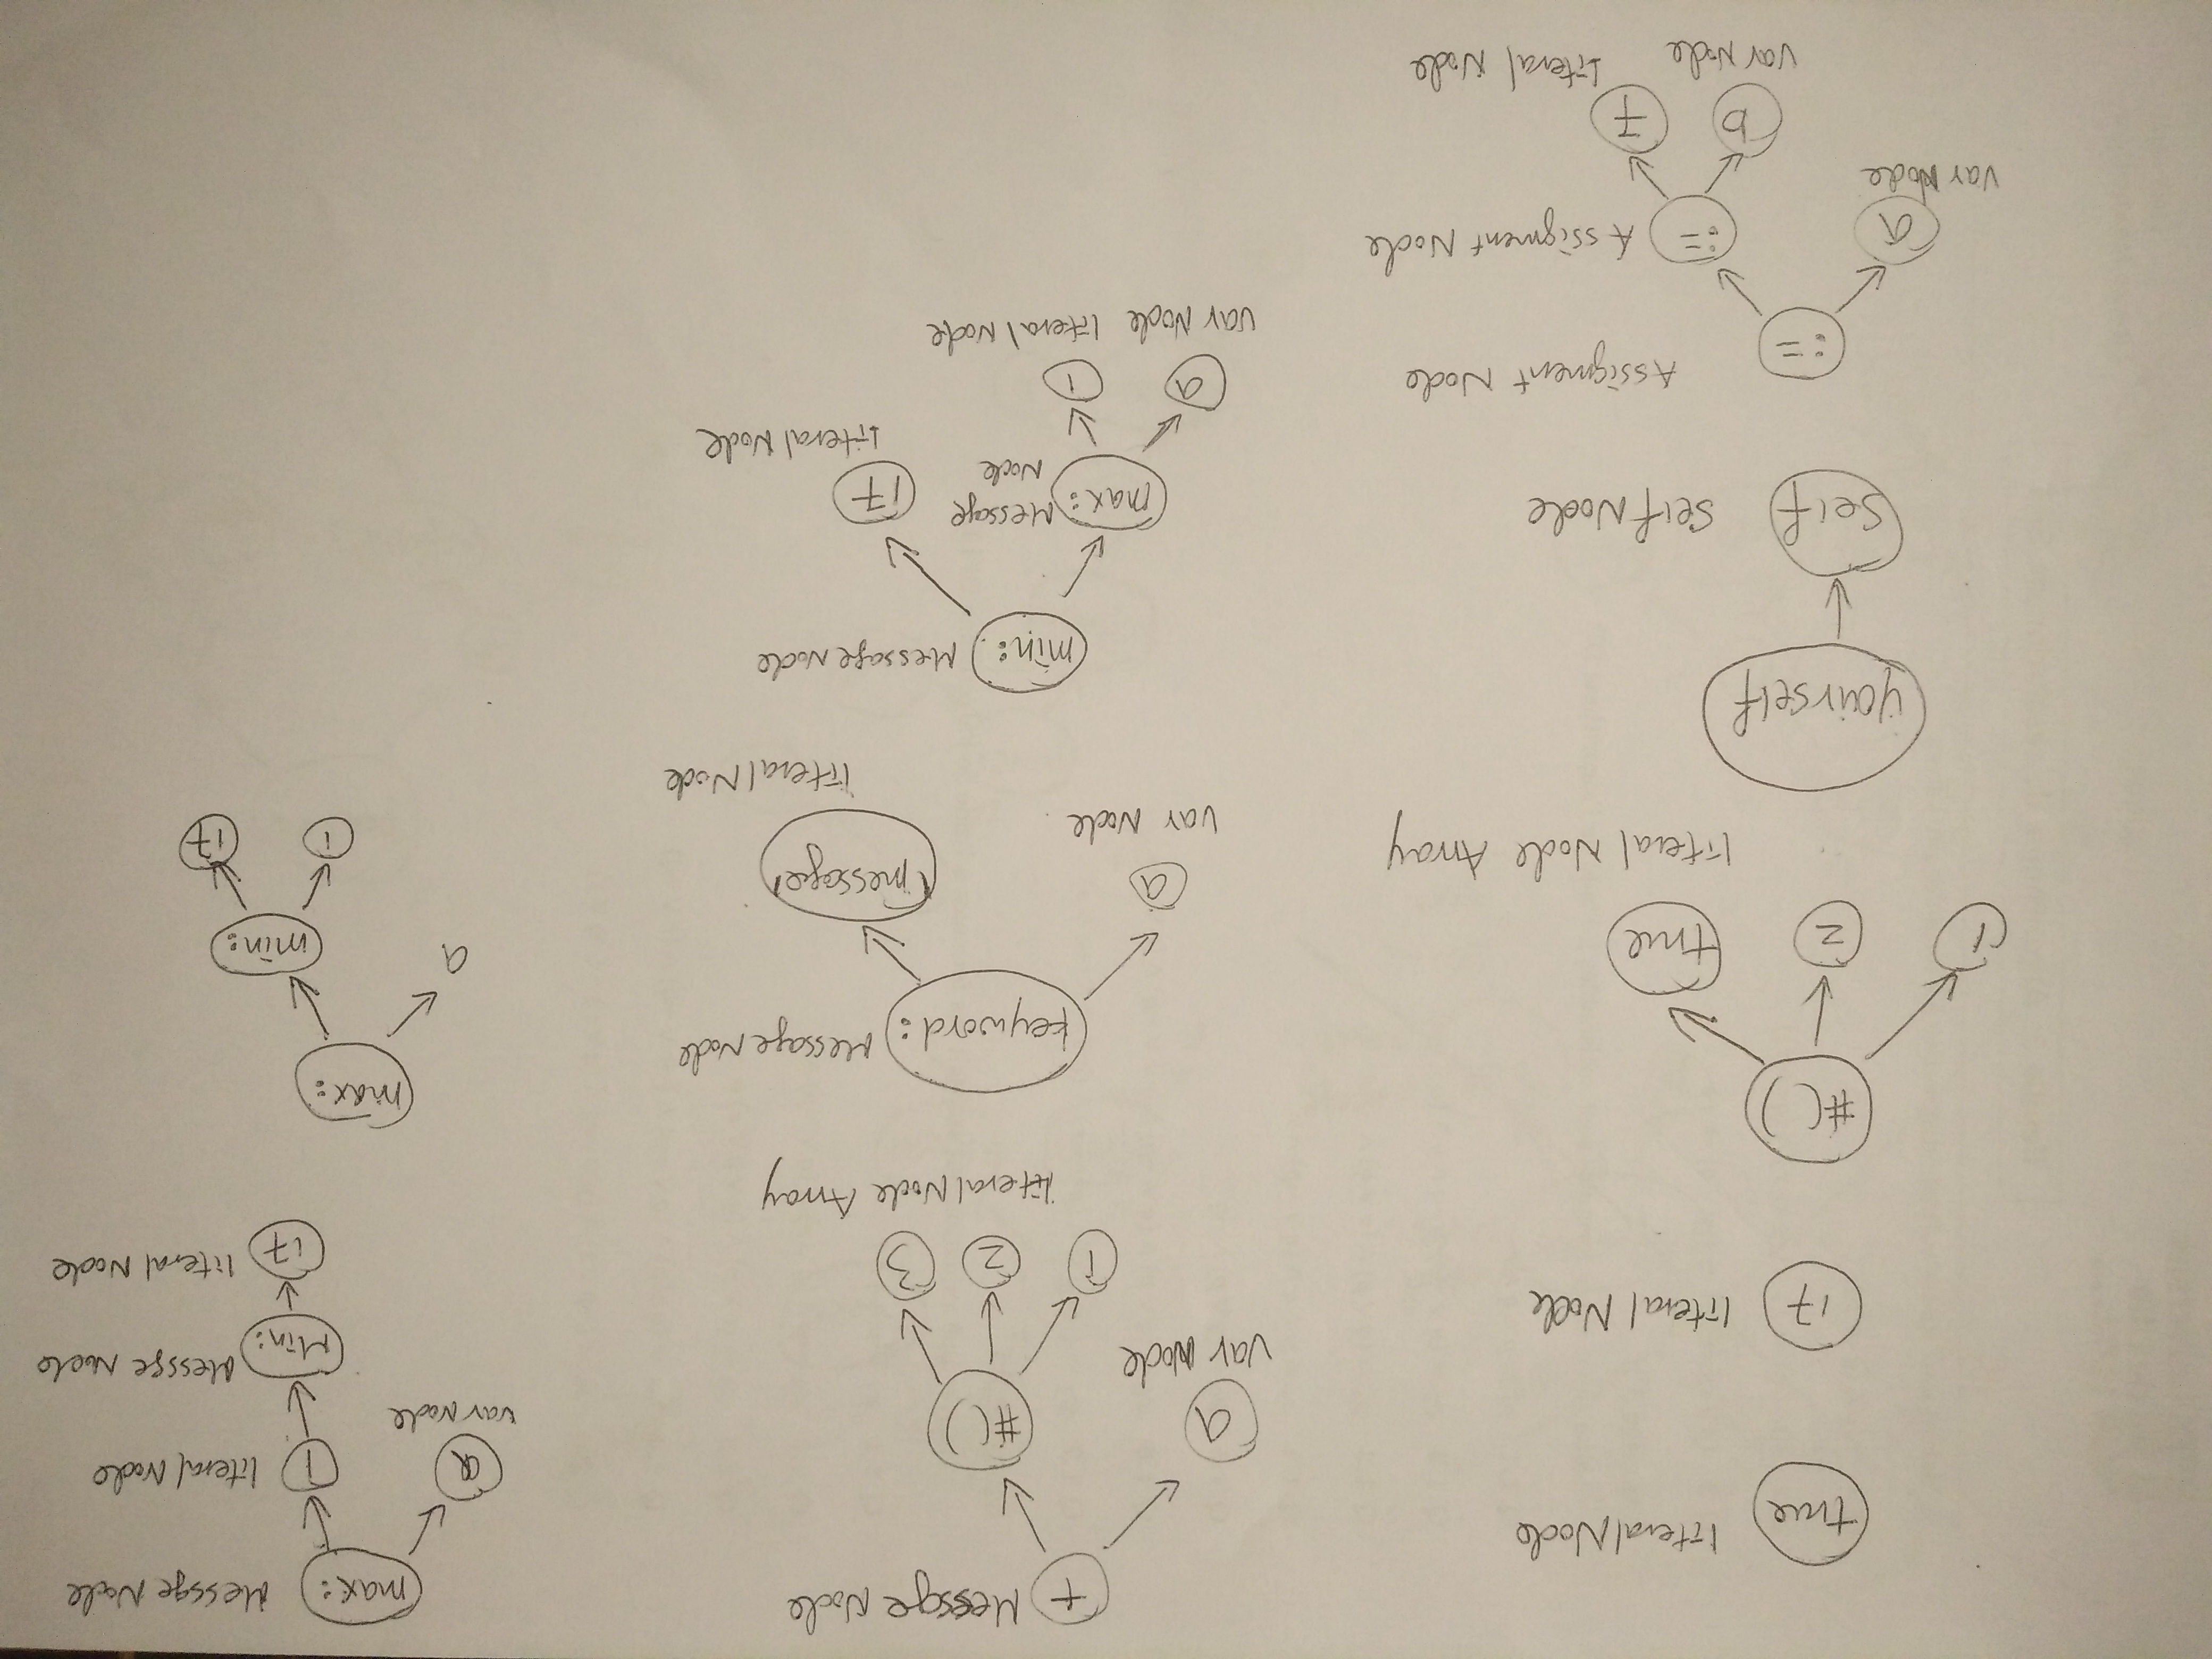 true literalNode
17 literal Node
#()
1 2 true
literal Node Array
yourself
self selfNode
:= Assigment Node
a := Assigment Node
var Node
b 7
var Node Literal Node
+ Messge Node
a #()
var Node
1 2 3
literalNode Array
keyword: MessageNode
a 'message'
var Node
literalNode
min: MessageNode
max: Message
Node
17
Literal Node
a 1
var Node literal Node
max: Messge Node
a 1 literal Node
var Node
Min: Messge Node
17 literal Node
max:
a min:
1 17